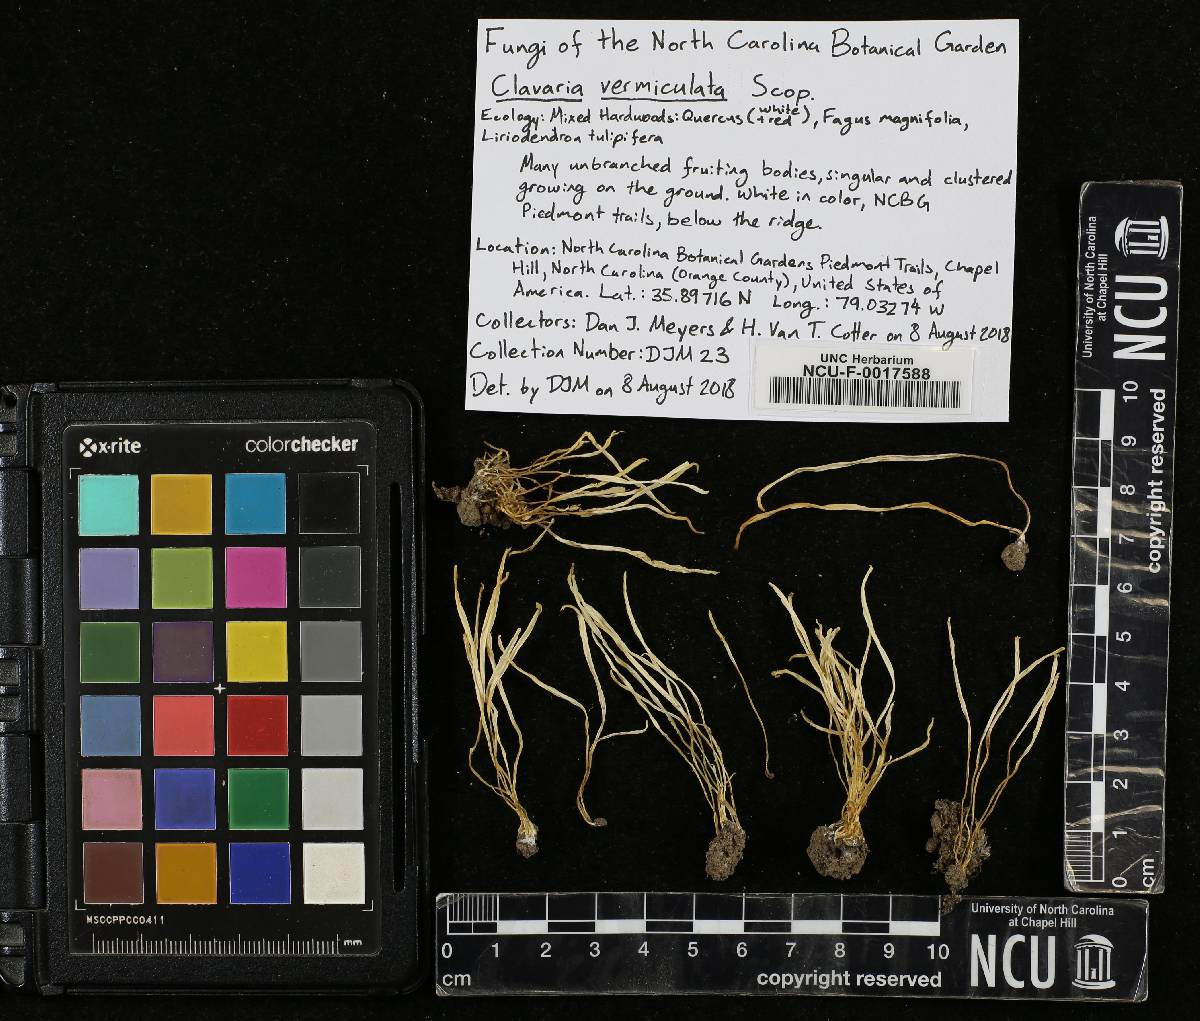 Fungi of the North Carolina Botanical Garden
Clavaria vermiculata Scop.
Ecology: Mixed Hardwoods: Quercus (white + red), Fagus magnifolia,
Liriodendron tulipifera
Many unbranched fruiting bodies, singular and clustered
growing on the ground. White in color, NCBG
Piedmont trails, below the ridge.
Location: North Carolina Botanical Gardens Piedmont Trails, Chapel
Hill, North Carolina (Orange County), United States of
America. Lat.: 35.89716 N Long.: 79.03274 W
Collectors: Dan J. Meyers & H. Van T. Cotter on 8 August 2018
Collection Number: DJM 23
Det. by DJM on 8 August 2018
UNC Herbarium
NCU-F-0017588
x-rite colorchecker
MSCCPPCC0411
mm
University of North Carolina
at Chapel Hill
NCU
copyright reserved
0 1 2 3 4 5 6 7 8 9 10
cm
0 1 2 3 4 5 6 7 8 9 10
cm
copyright reserved
University of North Carolina
at Chapel Hill
NCU